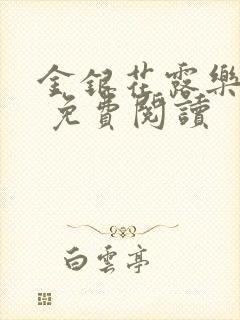 金銀花露樂
免費閱讀
白雲亭